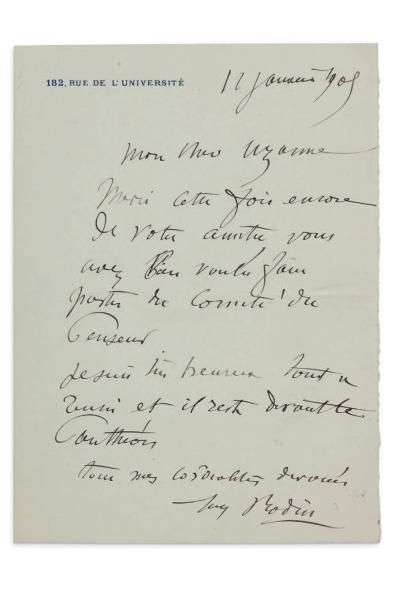 182, RUE DE L'UNIVERSITÉ
Janvier 1905
Mon cher Uzanne
Merci cette fois encore
de votre amitié vous
avez bien voulu faire
partie du Comité du
Penseur
Je suis très heureux tout a
réussi et il reste devant le
Panthéon
tous mes cordialités dévoués
Aug Rodin